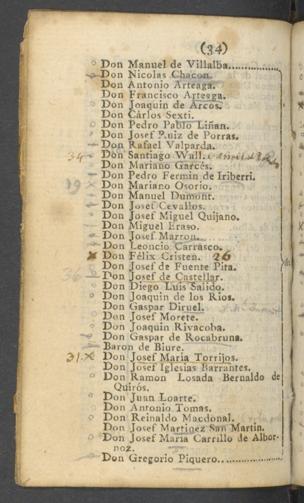 (34)
Don Manuel de Villalba..........
Don Nicolas Chacon.
Don Antonio Arteaga.
Don Francisco Arteaga.
Don Joaquin de Arcos.
Don Cárlos Sexti.
Don Pedro Pablo Liñan.
Don Josef Ruiz de Porras.
Don Rafael Valparda.
34 Don Santiago Wall.
Don Mariano Garcés.
Don Pedro Fermin de Iriberri.
19 Don Mariano Osorio.
Don Manuel Dumont.
Don Josef Cevallos.
Don Josef Miguel Quijano.
Don Miguel Eraso.
Don Josef Marron.
Don Leoncio Carrasco.
x Don Félix Cristen. 26
Don Josef de Fuente Pita.
36 Don Josef de Castellar.
Don Diego Luis Salido.
Don Joaquin de los Rios.
Don Gaspar Diruel.
Don Josef Morete.
Don Joaquin Rivacoba.
Don Gaspar de Rocabruna.
Baron de Biure.
31.x Don Josef María Torrijos.
Don Josef Iglesias Barrantes.
Don Ramon Losada Bernaldo de
Quirós.
Don Juan Loarte.
Don Antonio Tomas.
Don Reinaldo Macdonal.
Don Josef Martinez San Martin.
Don Josef María Carrillo de Albor-
noz.
Don Gregorio Piquero...............